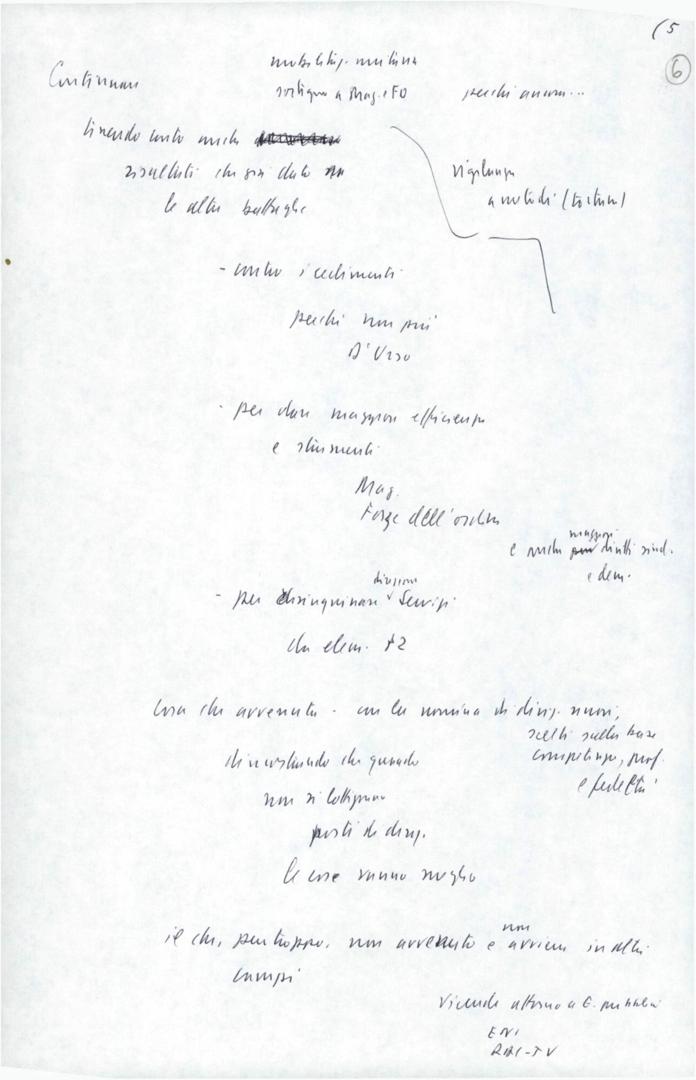 (5
6
mobilitaz. unitaria
Continuare
sostegno a Mag. e FO
perché ancora...
tenendo conto anche
risultati che già dato
le altre battaglie
vigilanza
a metodi (tortura)
- contro i cedimenti
perché non più
D'Urso
- per dare maggiore efficienza
e strumenti
Mag.
Forze dell'ordine
maggiori
e anche diritti sind.
e dem.
divisioni
- per disinquinare Servizi
da elem. P2
Cosa che avvenuta - con la nomina di dirig. nuovi,
scelti sulla base
competenza, prof.
e fedeltà
dimostrando che quando
non si lottizzano
posti di dirig.
le cose vanno meglio
non
il che, purtroppo, non avvenuto e avviene in altri
campi
Vicende attorno a E. pubblici
ENI
RAI-TV